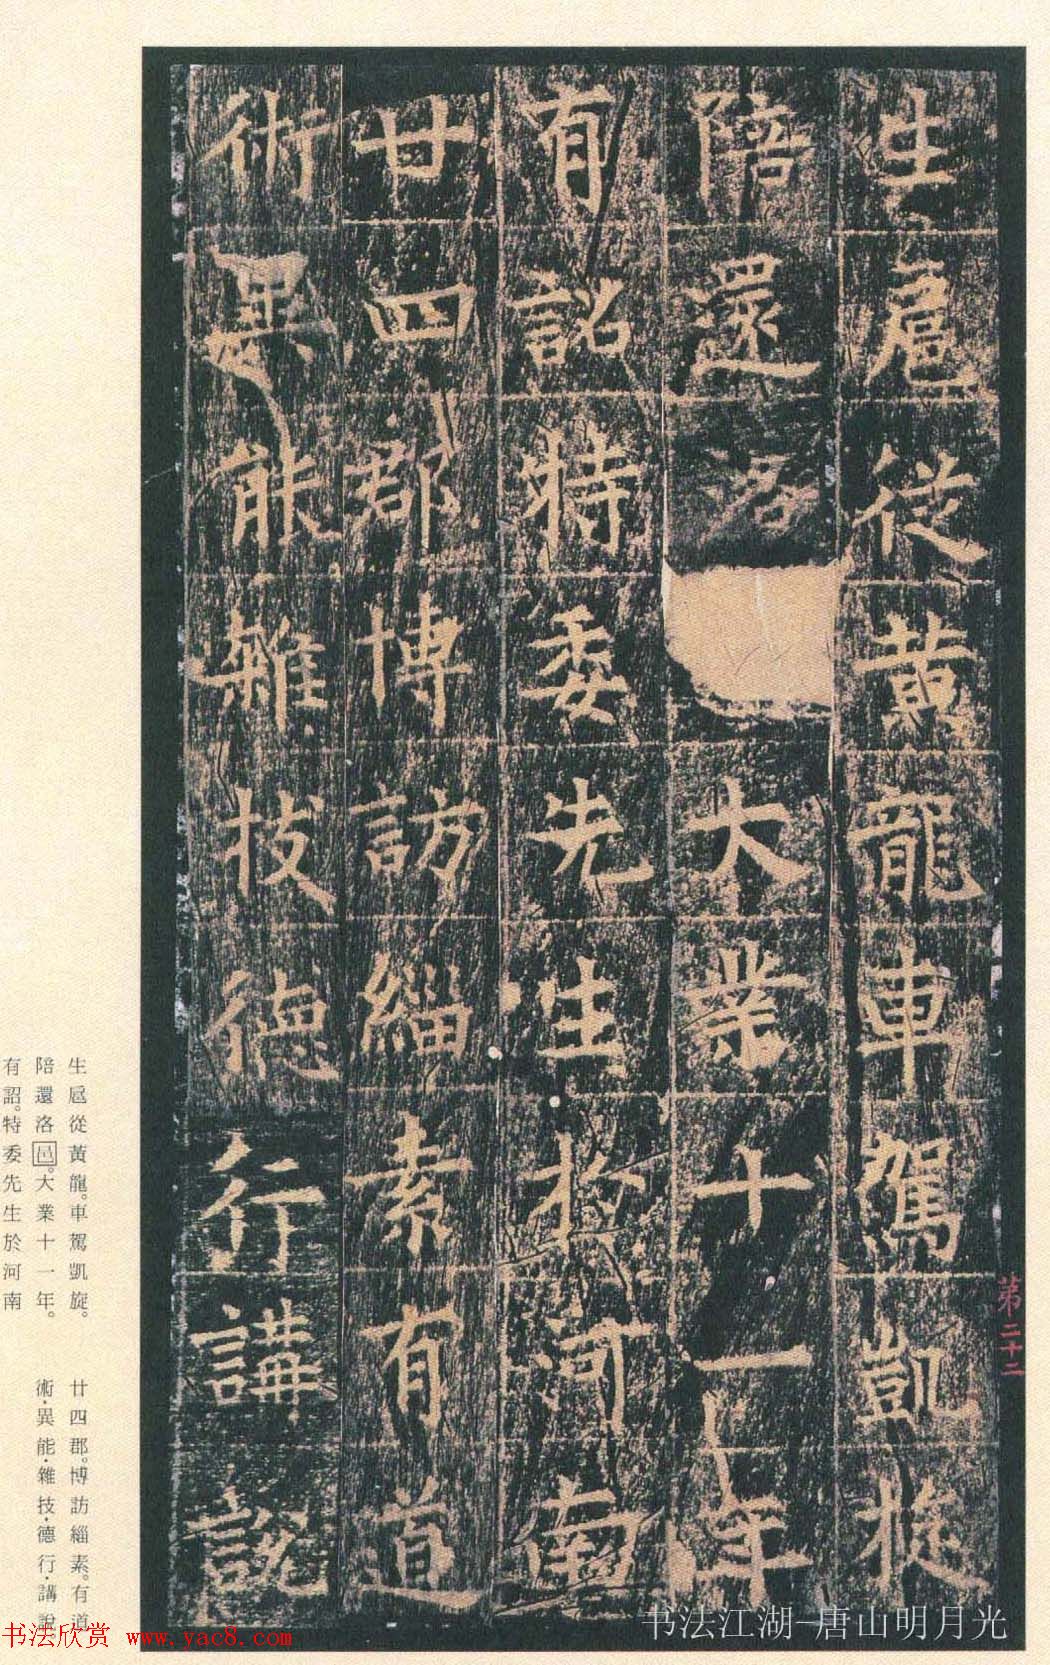 生扈從黃龍車駕凱旋
陪還洛大業十一年
有詔特委先生於河南
廿四郡博訪緇素有道
術異能雜技德行講說
第二十二
生扈從黃龍。車駕凱旋。
陪還洛邑。大業十一年。
有詔。特委先生於河南
廿四郡。博訪緇素。有道
術·異能·雜技·德行·講說
书法江湖-唐山明月光
书法欣赏 www.yac8.com